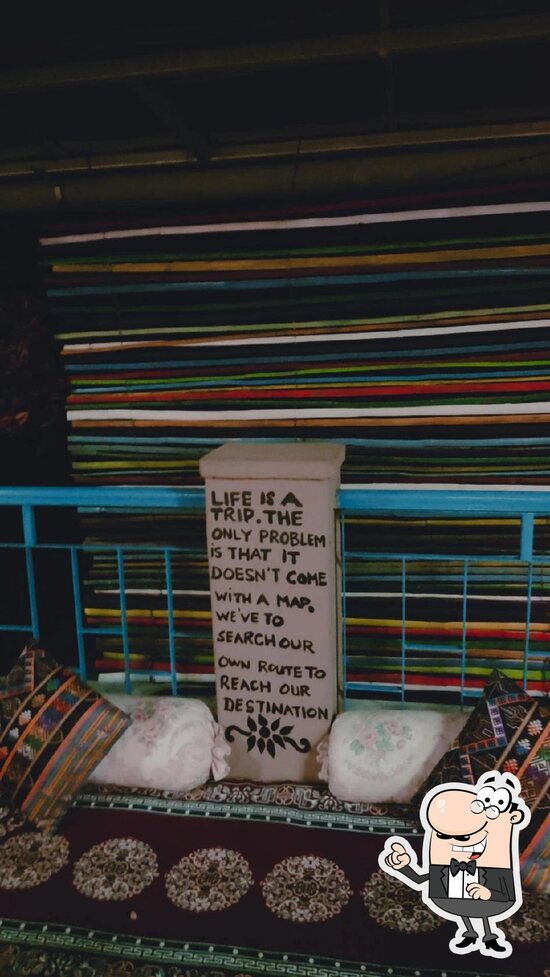 LIFE IS A
TRIP. THE
ONLY PROBLEM
IS THAT IT
DOESN'T COME
WITH A MAP.
WE'VE TO
SEARCH OUR
OWN ROUTE TO
REACH OUR
DESTINATION